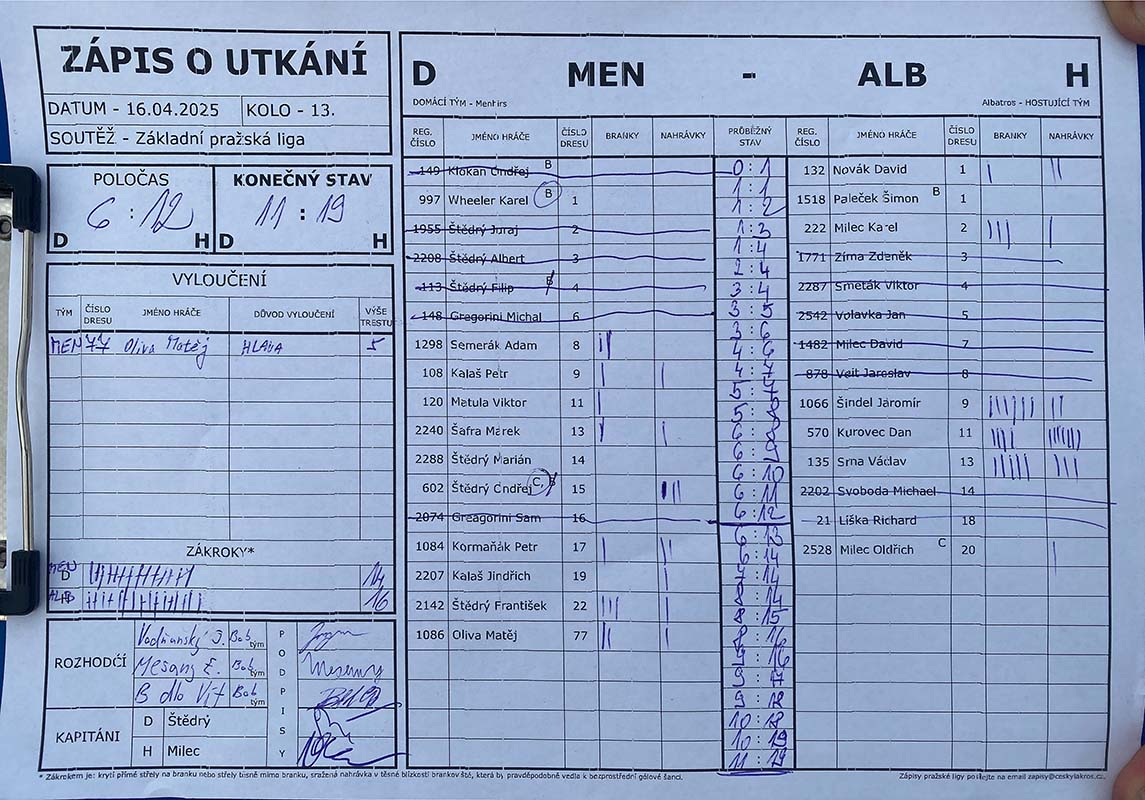 ZÁPIS O UTKÁNÍ
DATUM - 16.04.2025 KOLO - 13.
SOUTĚŽ - Základní pražská liga
POLOČAS KONEČNÝ STAV
6 : 12 11 : 19
D H D H
VYLOUČENÍ
TÝM ČÍSLO DRESU JMÉNO HRÁČE DŮVOD VYLOUČENÍ VÝŠE TRESTU
MEN 77 Oliva Matěj HLAVA 5
ZÁKROKY*
MEN D 14
ALB 16
ROZHODČÍ
Vodňanský J. Bob tým
Mesany E. Bob tým
Vít Bob tým
PODPISY
KAPITÁNI
D Štědrý
H Milec
D MEN - ALB H
DOMÁCÍ TÝM - Menhirs Albatros - HOSTUJÍCÍ TÝM
REG. ČÍSLO JMÉNO HRÁČE ČÍSLO DRESU BRANKY NAHRÁVKY PRŮBĚŽNÝ STAV REG. ČÍSLO JMÉNO HRÁČE ČÍSLO DRESU BRANKY NAHRÁVKY
149 Klokan Ondřej B
997 Wheeler Karel B 1
1955 Štědrý Juraj 2
2208 Štědrý Albert 3
113 Štědrý Filip B 4
148 Gregorini Michal 6
1298 Semerák Adam 8 ||
108 Kalaš Petr 9 | |
120 Matula Viktor 11 |
2240 Šafra Marek 13 | |
2288 Štědrý Marián 14
602 Štědrý Ondřej C, B 15 |||
2074 Greagorini Sam 16
1084 Kormaňák Petr 17 | ||
2207 Kalaš Jindřich 19 |
2142 Štědrý František 22 ||| |
1086 Oliva Matěj 77 || |
0 : 1
1 : 1
1 : 2
1 : 3
1 : 4
2 : 4
3 : 4
3 : 5
3 : 6
4 : 6
4 : 7
5 : 7
5 : 8
6 : 8
6 : 9
6 : 10
6 : 11
6 : 12
6 : 13
6 : 14
7 : 14
8 : 14
8 : 15
8 : 16
9 : 16
9 : 17
9 : 18
10 : 18
10 : 19
11 : 19
132 Novák David 1 | ||
1518 Paleček Šimon B 1
222 Milec Karel 2 ||| |
1771 Zíma Zdeněk 3
2287 Smeták Viktor 4
2542 Volavka Jan 5
1482 Milec David 7
878 Veit Jaroslav 8
1066 Šindel Jaromír 9 |||||| ||
570 Kurovec Dan 11 ||||
135 Srna Václav 13 ||||| |||
2202 Svoboda Michael 14
21 Líška Richard 18
2528 Milec Oldřich C 20 |
* Zákrokem je: krytí přímé střely na branku nebo střely těsně mimo branku, sražená nahrávka v těsné blízkosti brankoviště, která by pravděpodobně vedla k bezprostřední gólové šanci.
Zápisy pražské ligy posílejte na email zapisy@ceskylakros.cz.